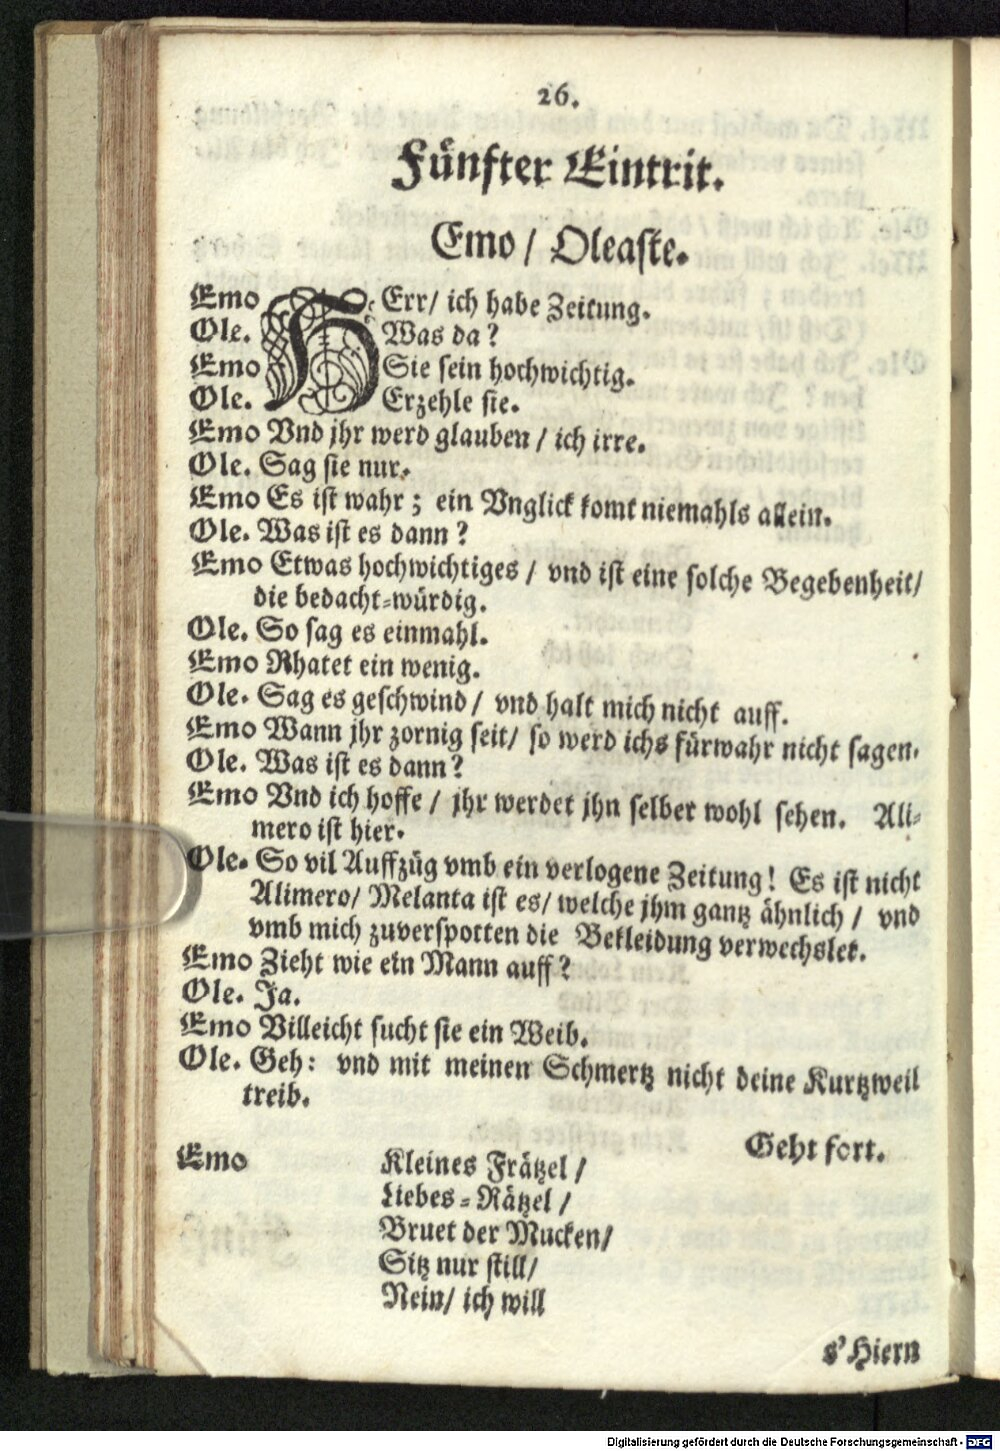 26.
Fünfter Eintrit.
Emo / Oleaske.
Emo HErr/ ich habe Zeitung.
Ole. Was da?
Emo Sie sein hochwichtig.
Ole. Erzehle sie.
Emo Vnd jhr werd glauben / ich irre.
Ole. Sag sie nur.
Emo Es ist wahr; ein Vnglick komt niemahls allein.
Ole. Was ist es dann?
Emo Etwas hochwichtiges / vnd ist eine solche Begebenheit/
die bedacht-würdig.
Ole. So sag es einmahl.
Emo Rhatet ein wenig.
Ole. Sag es geschwind / vnd halt mich nicht auff.
Emo Wann jhr zornig seit/ so werd ichs fürwahr nicht sagen.
Ole. Was ist es dann?
Emo Vnd ich hoffe / jhr werdet jhn selber wohl sehen. Ali-
mero ist hier.
Ole. So vil Auffzüg vmb ein verlogene Zeitung! Es ist nicht
Alimero/ Melanta ist es/ welche jhm gantz ähnlich / vnd
vmb mich zuverspotten die Bekleidung verwechslet.
Emo Zieht wie ein Mann auff?
Ole. Ja.
Emo Villeicht sucht sie ein Weib.
Ole. Geh: vnd mit meinen Schmertz nicht deine Kurtzweil
treib.
Geht fort.
Emo Kleines Frätzel /
Liebes-Rätzel /
Bruet der Mucken/
Sitz nur still/
Nein/ ich will
s'Hiern
Digitalisierung gefördert durch die Deutsche Forschungsgemeinschaft - DFG